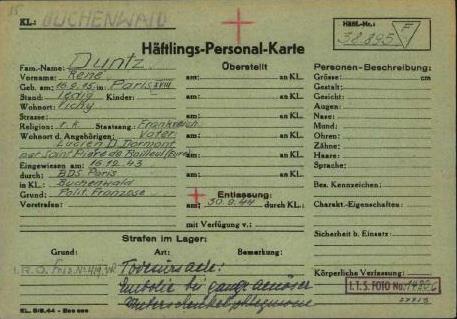 KL.: BUCHENWALD
Häftl.-Nr.:
38.895 F
Häftlings-Personal-Karte
Fam.-Name: Duntz
Vorname: René
Geb. am: 16.9.15 in Paris XVIII
Stand: ledig Kinder:
Wohnort: Vichy
Strasse:
Religion: r.k. Staatsang. Frankreich
Wohnort d. Angehörigen: Vater
Lucien D. Dormont
Saint Pierre de Bailleul (Eure)
Eingewiesen am: 16.12.43
durch: BDS Paris
in KL.: Buchenwald
Grund: Polit. Franzose
Vorstrafen:
Überstellt
am: an KL.
am: an KL.
am: an KL.
am: an KL.
am: an KL.
am: an KL.
Entlassung:
am: 30.9.44 durch KL.:
mit Verfügung v.:
Personen-Beschreibung:
Grösse: cm
Gestalt:
Gesicht:
Augen:
Nase:
Mund:
Ohren:
Zähne:
Haare:
Sprache:
Bes. Kennzeichen:
Charakt.-Eigenschaften:
Sicherheit b. Einsatz:
Körperliche Verfassung:
Strafen im Lager:
Grund: Art: Bemerkung:
Todesursache:
Embolie bei gangraenöser
Unterschenkelphlegmone
I.T.S. FOTO No.
KL. 5/5.44